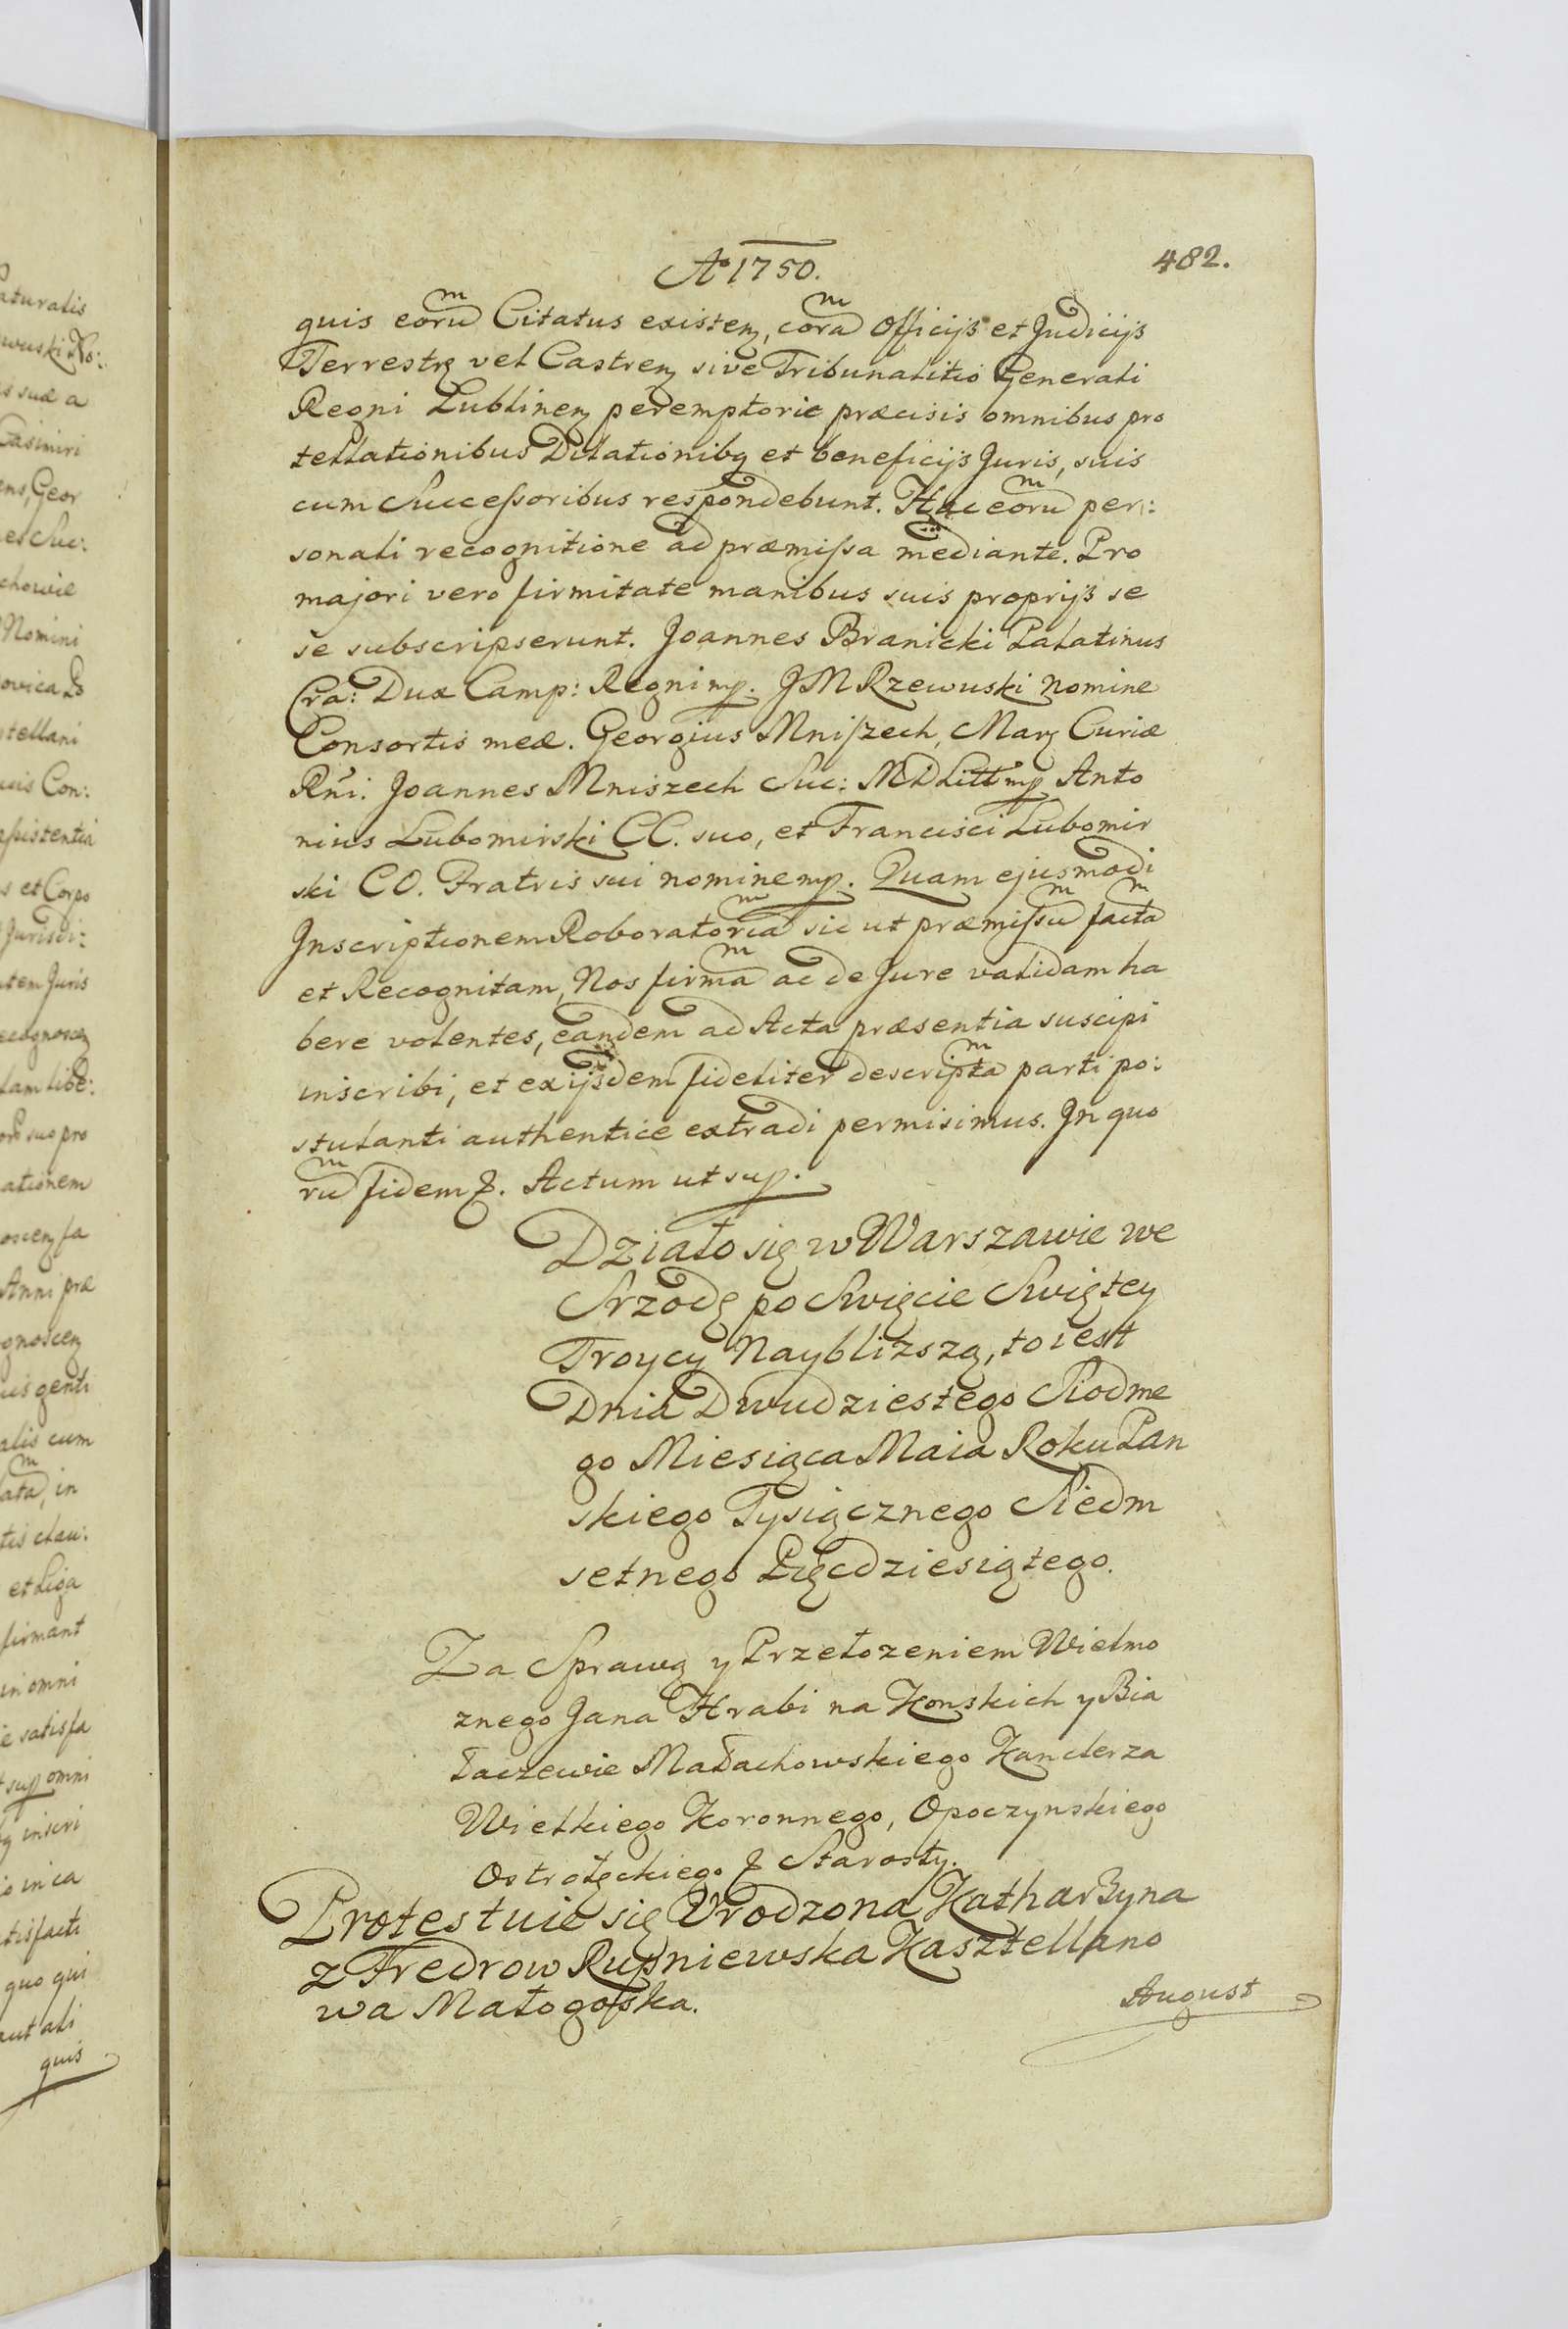 Aº 1750.
482.
quis eoru͠m Citatus existen., cora͠m Officijs et Judicijs
Terrestr. vel Castren. sive Tribunalitio Generali
Regni Lublinen. peremptorie præcisis omnibus pro
tellationibus Dilationibq et beneficijs Juris, suis
cum Succeſsoribus respondebunt. Hac eoru͠m per:
sonali recognitione ad præmiſsa mediante. Pro
majori vero firmitate manibus suis proprijs se
se subscripserunt. Joannes Branicki Palatinus
Cra: Dux Camp: Regni mp. JM Rzewuski Nomine
Consortis meæ. Georgius Mniſzech, Mar. Curiæ
Rñi. Joannes Mniszech Suc: MDLitt mp Anto
nius Lubomirski CC. suo, et Francisci Lubomir
ski CO. Fratris sui nomine mp. Quam ejusmodi
Inscriptionem Roboratoria͠m sic ut præmiſsu͠m facta͠m
et Recognitam, Nos firma͠m ac de Jure validam ha
bere volentes, eandem ad Acta præsentia suscipi
inscribi, et ex ijsdem fideliter descripta͠m parti po:
stulanti authentice extradi permisimus. In quo
ru͠m fidem &. Actum ut sup.
Działo się w Warszawie we
Srzodę po Swięcie Swiętey
Troycy Naybliższą, to iest
Dnia Dwudziestego Siodme
go Miesiąca Maia Roku Pan
skiego Tysiącznego Siedm
setnego Pięcdziesiątego.
Za Sprawą y Przełożeniem Wielmo
znego Jana Hrabi na Konskich y Bia
łaczewie Małachowskiego Kanclerza
Wielkiego Koronnego, Opoczynskiego
Ostrołęckiego & Starosty.
Protestuie się Vrodzona Katharzyna
z Fredrow Rupniewska Kasztellano
wa Małogoſska.
August
aturalis
wuski No:
s suæ a
Casimiri
ens, Geor
et Suc:
chowie
Nomini
ovica Po
stellani
suis Con:
aſsistentia
s et Corpo
Jurisdi:
tem Juris
ecognoscen.
lam libe:
suo pro
ationem
oscen. fa
Anni præ
gnoscen.
uis genti
alis cum
ata͠m, in
tis clau:
et Liga
firmant
in omni
e satisfa
sup omni
inscri
o in ca
tisfacti
quo qui
aut ali
quis